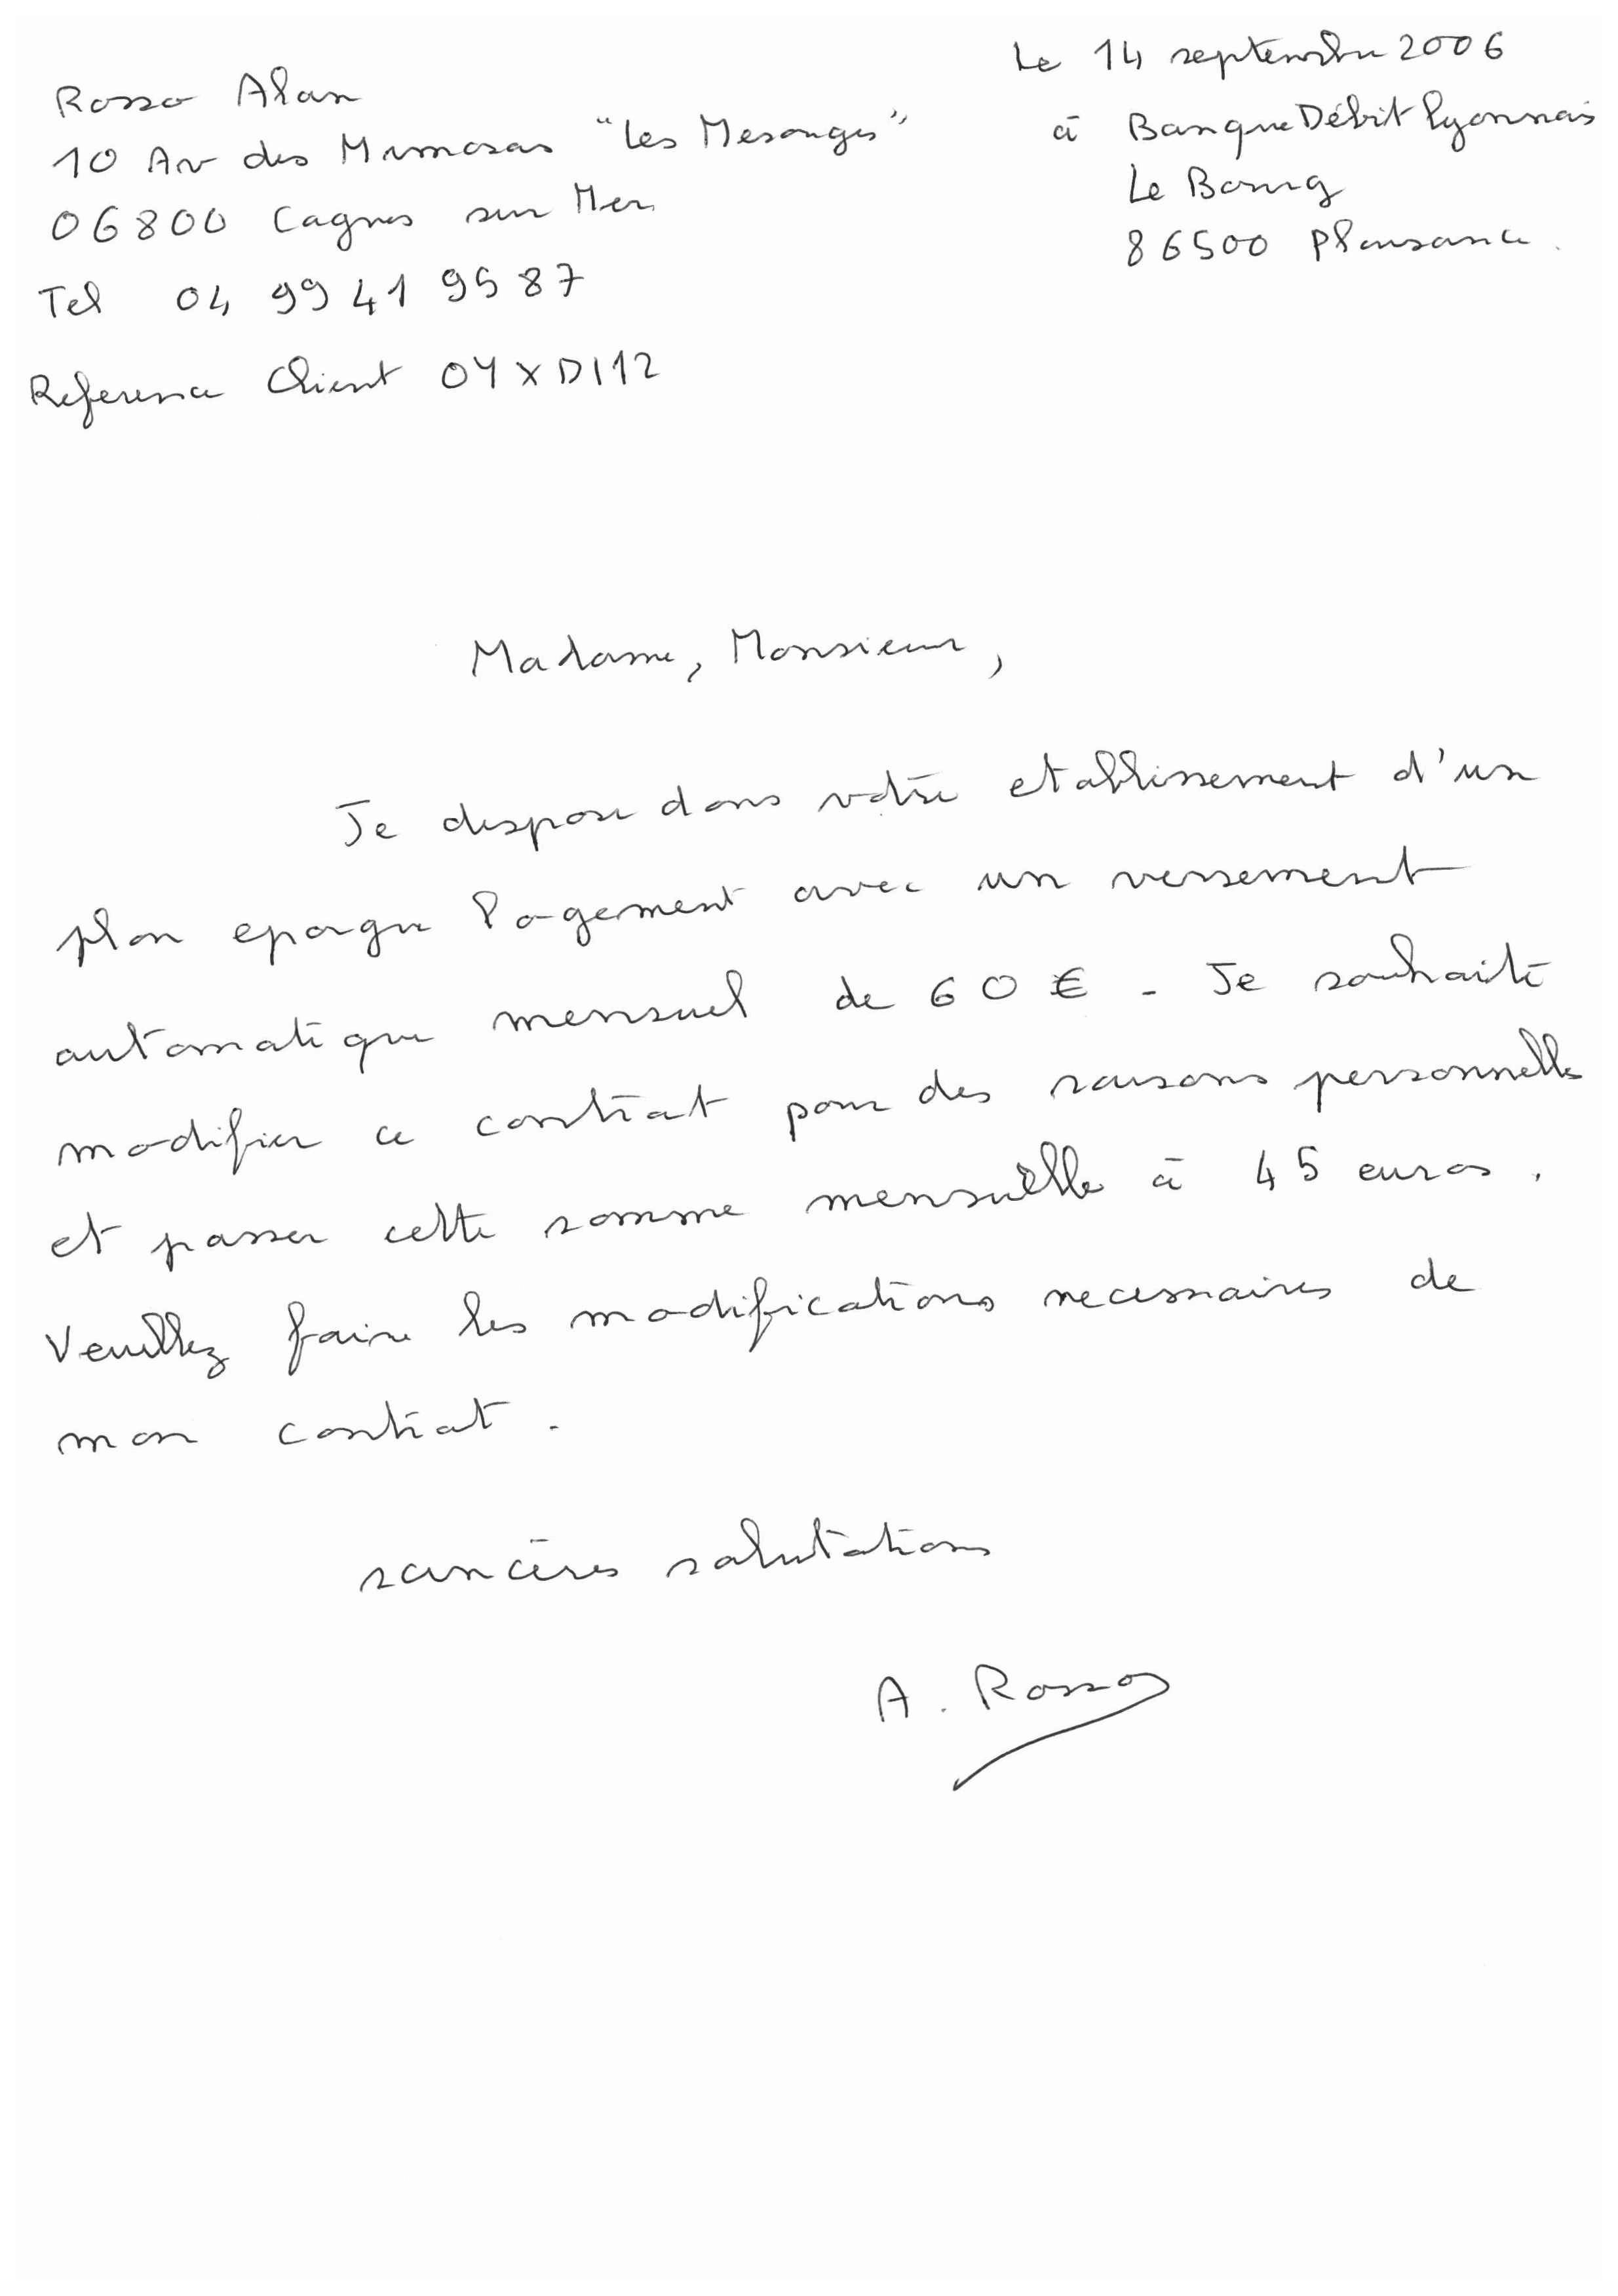 Rosso Alan
10 Av des Mimosas "Les Mesanges"
06800 Cagnes sur Mer
Tel 04 99 41 95 87
Reference Client OYXDI12
Le 14 septembre 2006
à Banque Débit Lyonnais
Le Bourg
86500 Plaisance.
Madame, Monsieur,
Je dispose dans votre etablissement d'un
plan epargne logement avec un versement
automatique mensuel de 60 € - Je souhaite
modifier ce contrat pour des raisons personnelles
et passer cette somme mensuelle à 45 euros.
Veuillez faire les modifications necessaires de
mon contrat.
sincères salutations
A. Rosso